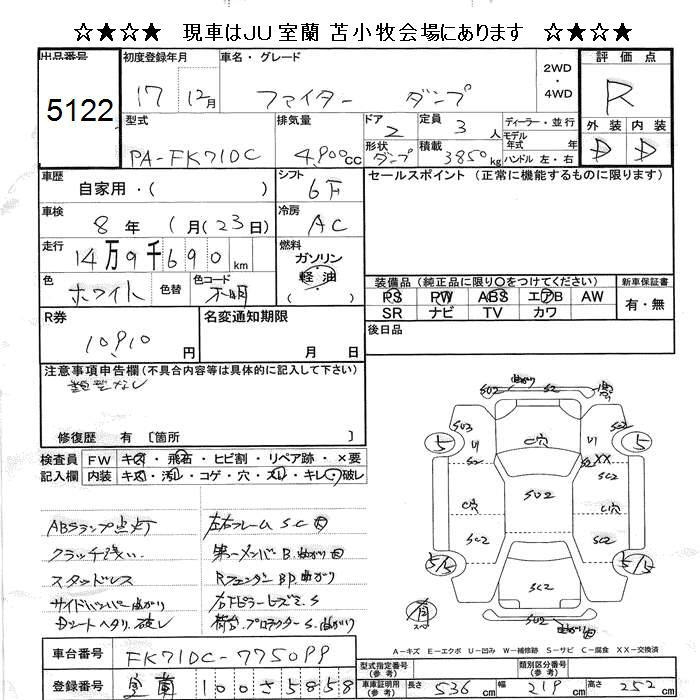 ☆★☆★ 現車はJU室蘭 苫小牧会場にあります ★☆★☆
出品番号
5122
初度登録年月
17 12月
車名・グレード
ファイター ダンプ
2WD
・
4WD
評価点
R
外装 内装
D D
型式
PA-FK71DC
排気量
4,900cc
ドア
2
形状
ダンプ
定員
3人
積載
3850kg
ディーラー・並行
モデル
年式 年
ハンドル 左・右
車歴
自家用・( )
シフト
6F
セールスポイント (正常に機能するものに限ります)
車検
8年 1月(23日)
冷房
AC
走行
14万9千690km
燃料
ガソリン
軽油
色
ホワイト
色替
色コード
不明
装備品 (純正品に限り○をつけてください)
PS PW ABS エアB AW
SR ナビ TV カワ
新車保証書
有・無
R券
10,910円
名変通知期限
月 日
後日品
注意事項申告欄(不具合内容等は具体的に記入して下さい)
修復歴 有 〔箇所 〕
検査員
記入欄
FW キズ・飛石・ヒビ割・リペア跡・×要
内装 キズ・汚レ・コゲ・穴・スレ・キレ・破レ
ABSランプ点灯
クラッチ浅い
スタッドレス
サイドバンパー曲がり
Dシートヘタリ、破レ
左右フレームSC
第一メンバB.曲がり
RフェンダーBP曲がり
右Fピラーヒズミ.S
荷台.プロテクターS.曲がり
A-キズ E-エクボ U-凹み W-補修跡 S-サビ C-腐食 XX-交換済
車台番号
FK71DC-775099
登録番号
室蘭 100さ5858
型式指定番号
類別区分番号
車庫証明用
(参考)
長さ 536cm 幅 219cm 高さ 252cm